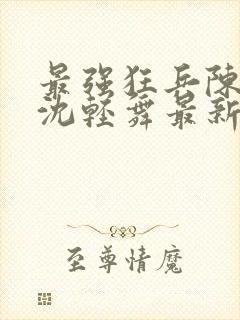 最强狂兵陈
沈轻舞最新
至尊情魔